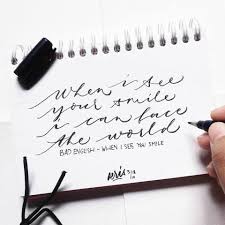 when i see
your smile
i can face
the world
BAD ENGLISH - WHEN I SEE YOU SMILE